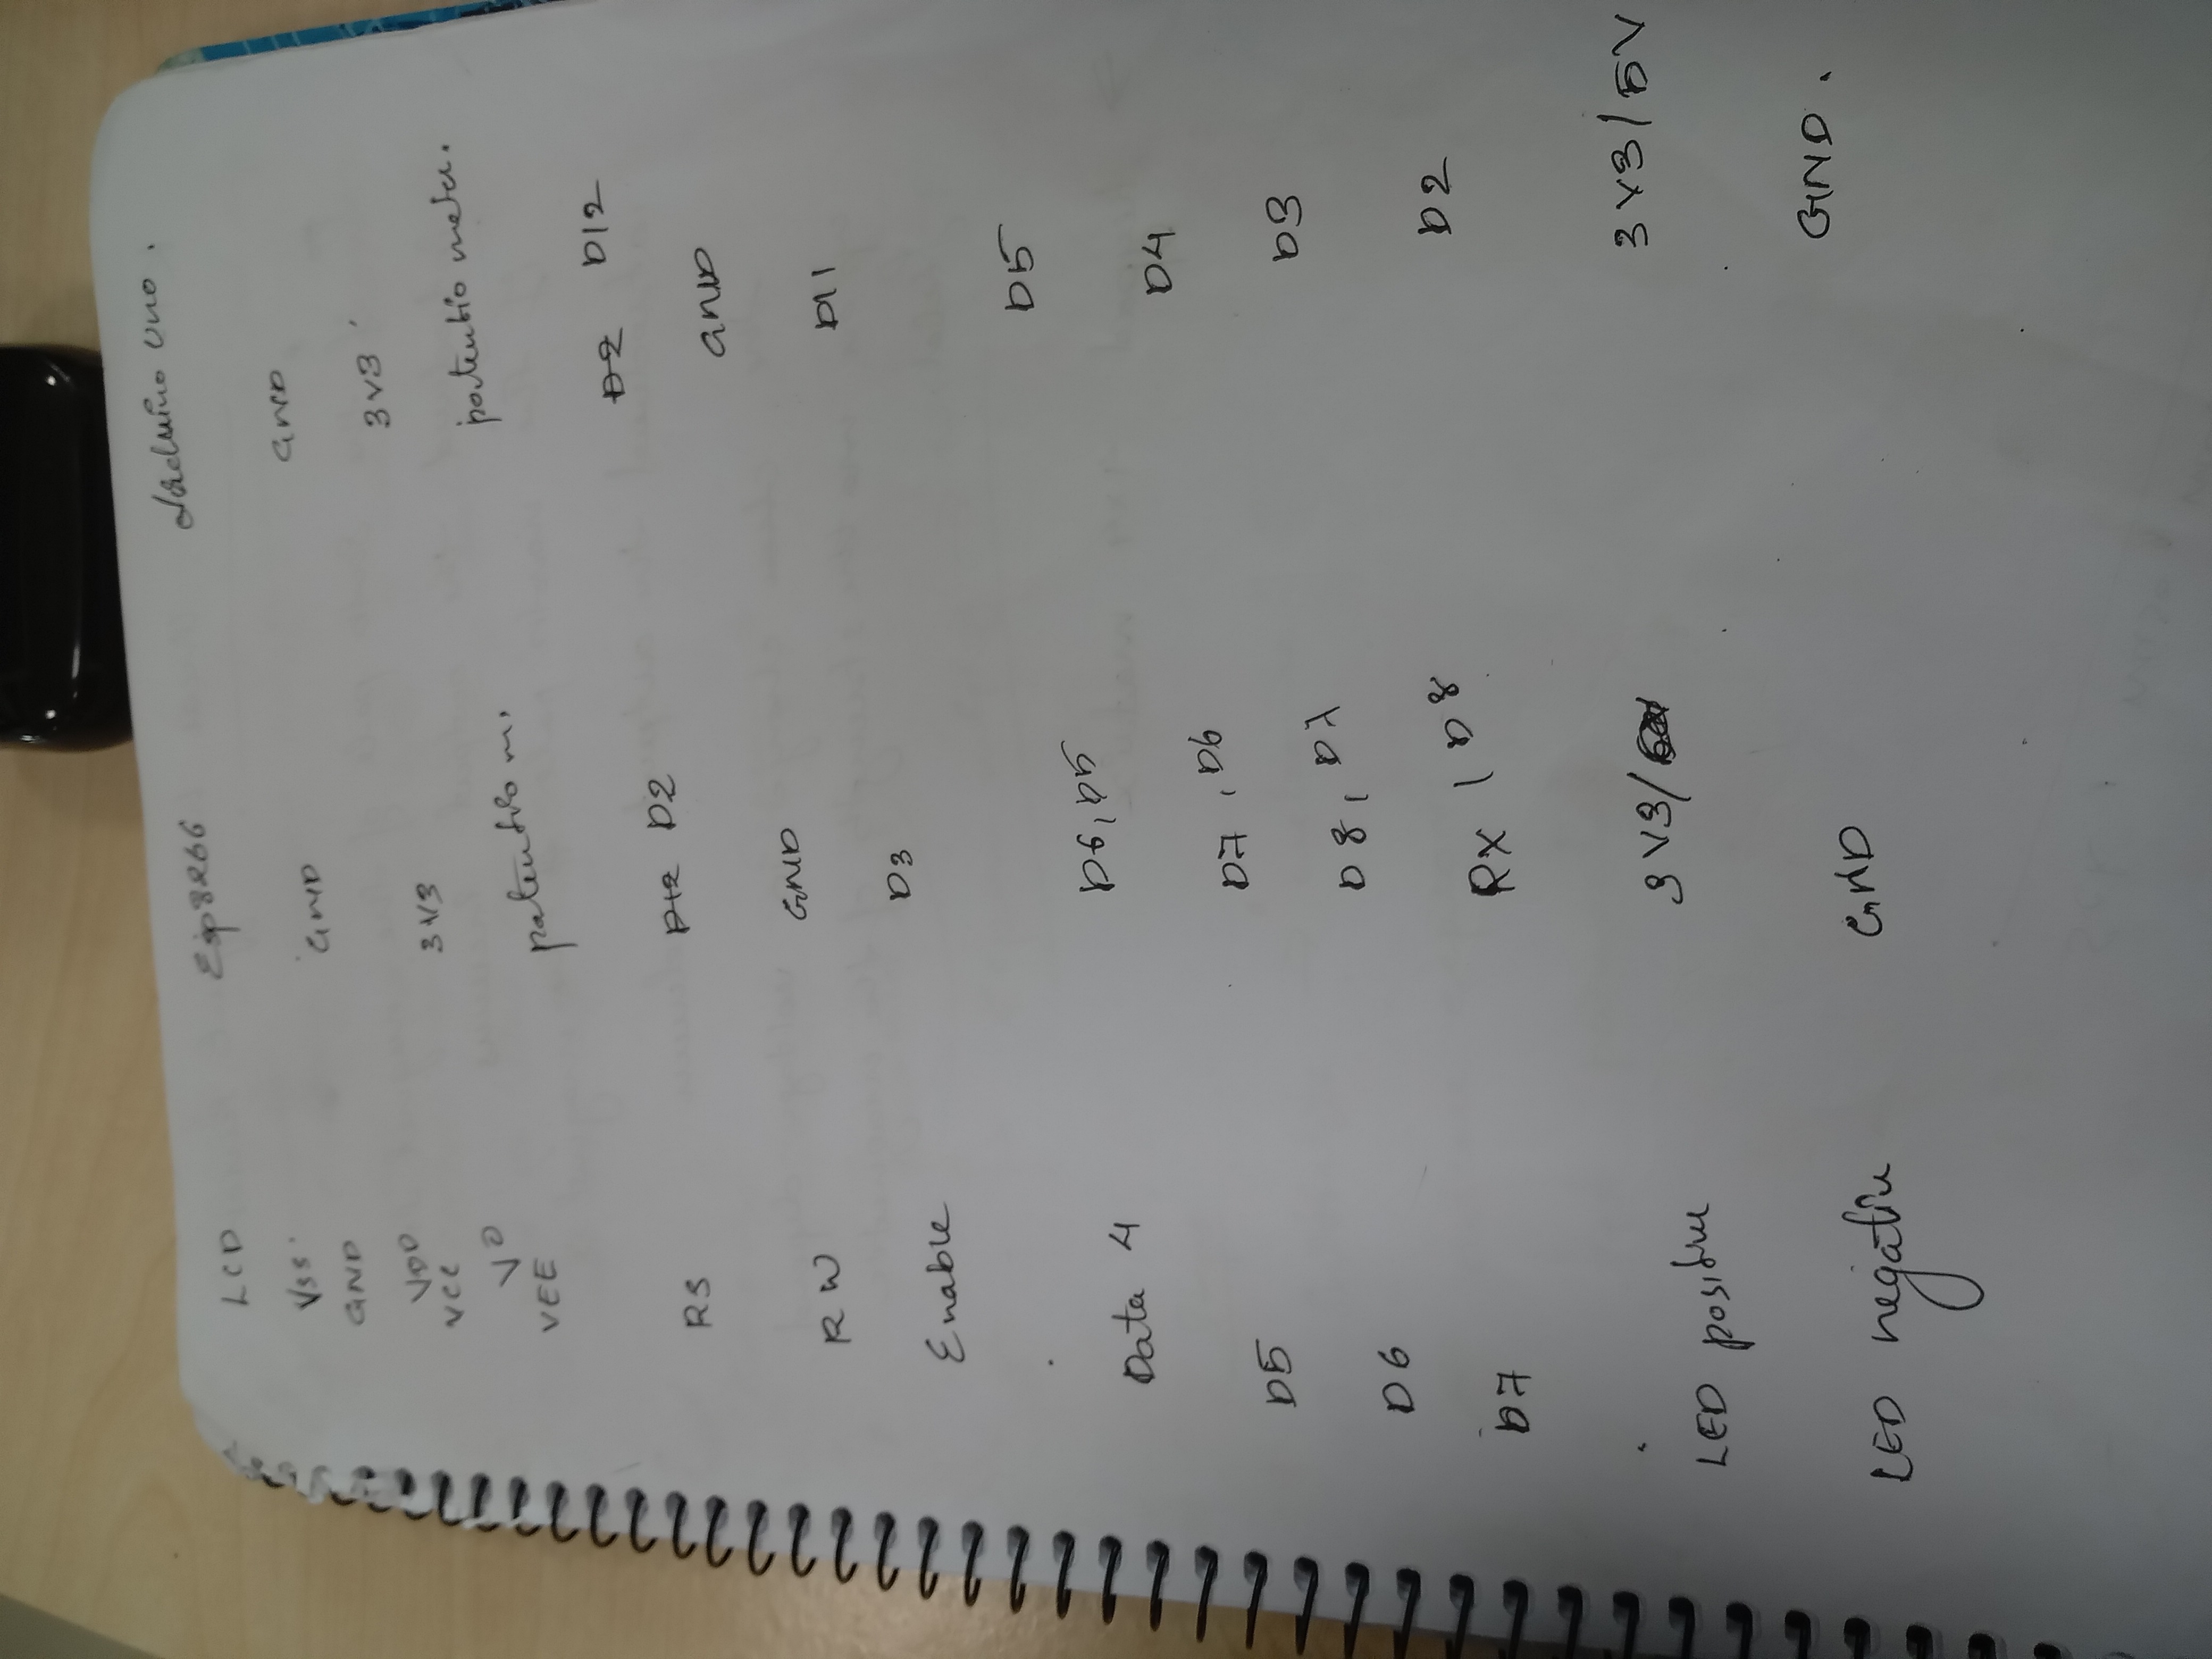 LCD Esp8266 Arduino Uno.
Vss GND GND
GND
VDD 3V3 3V3
VCC
V0 potentio m. potentio meter.
VEE
RS D12 D2 D2 D12
RW GND GND
Enable D3 D11
Data 4 D6, D5 D5
D5 D7, D6 D4
D6 D8, D7 D3
D7 RX, D8 D2
LED positive 3V3/ 3V3/5V
LED negative GND GND.